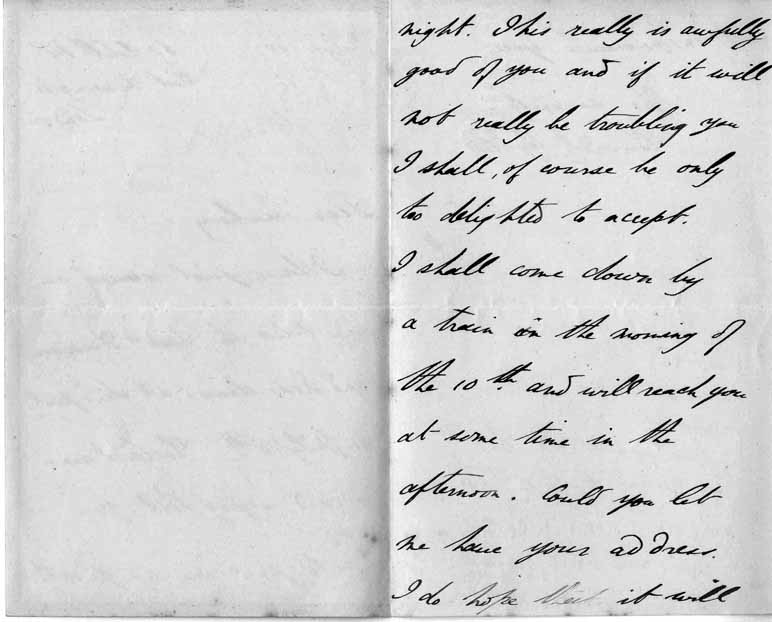 night. This really is awfully
good of you and if it will
not really be troubling you
I shall, of course be only
too delighted to accept.
I shall come down by
a train in the morning of
the 10th and will reach you
at some time in the
afternoon. Could you let
me have your address.
I do hope that it will